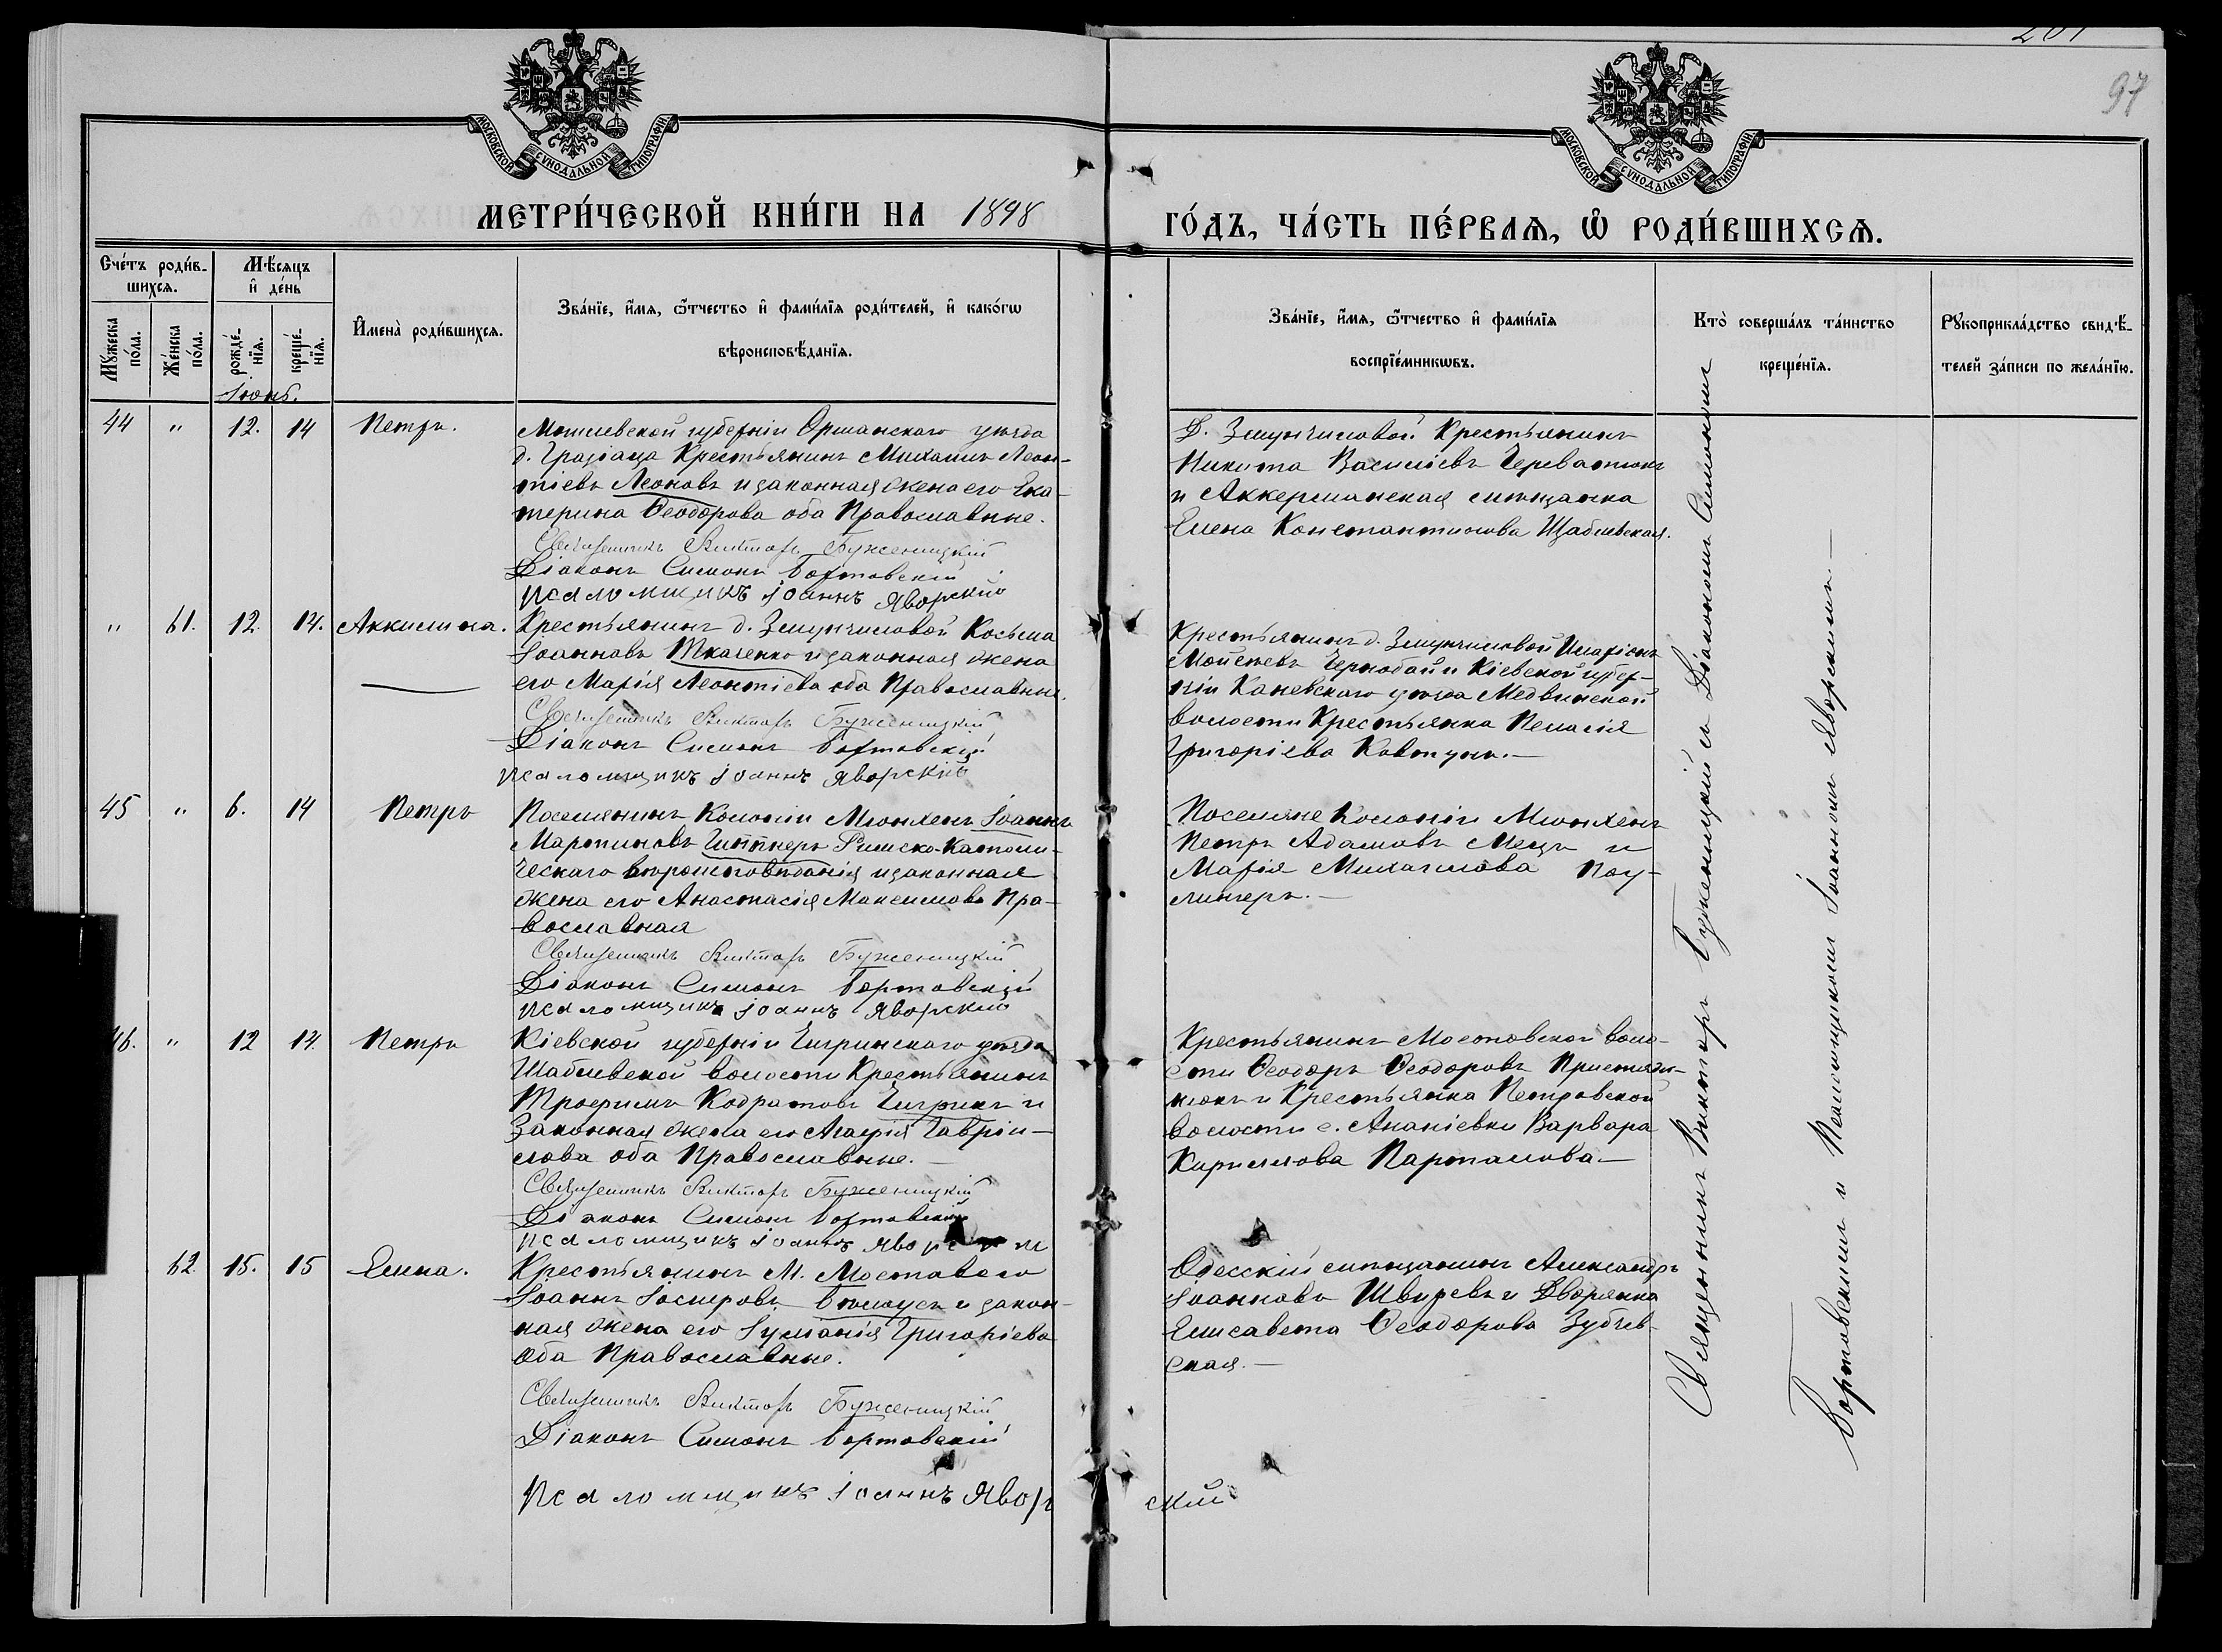 201
97
МОСКОВСКОЙ СѴНОДАЛЬНОЙ ТИПОГРАФІИ
МОСКОВСКОЙ СѴНОДАЛЬНОЙ ТИПОГРАФІИ
МЕТРИ́ЧЕСКОЙ КНИ́ГИ НА 1898
ГО́ДЪ, ЧА́СТЬ ПЕ́РВАѦ, Ѡ҆ РОДИ́ВШИХСѦ.
Сче́тъ роди́в-
шихсѧ.
Мѣ́сѧцъ
и҆ де́нь
Мꙋ́жеска по́ла.
Же́нска по́ла.
рожде́-нїѧ.
креще́-нїѧ.
И҆мена̀ роди́вшихсѧ.
Зва́нїе, и҆́мѧ, ѻ҆́тчество и҆ фами́лїѧ роди́телей, и҆ како́гѡ
вѣроисповѣ́данїѧ.
Зва́нїе, и҆́мѧ, ѻ҆́тчество и҆ фами́лїѧ
воспрїе́мникѡвъ.
Кто̀ соверша́лъ та́инство
креще́нїѧ.
Рꙋкоприкла́дство свидѣ́-
телей за́писи по жела́нїю.
Іюнь.
44 " 12. 14 Петръ.
Могилевской губерніи Оршанскаго уѣзда
Крестьянинъ Михаилъ Леон-
тіевъ Леоновъ и законная жена его Ека-
терина Ѳеодорова оба Православные.
Священникъ Викторъ Буженицкій
Діаконъ Симонъ Бортовскій
псаломщикъ іоаннъ Яворскій
Д. Змунчиловой Крестьянинъ
Никита Василіевъ Череватюкъ
и Аккерманская мѣщанка
Елена Константинова Щаблевская.
" 61. 12. 14. Аккилина.
Крестьянинъ д. Змунчиловой Косьма
Іоанновъ Ткаченко и законная жена
его Марія Леонтіева оба Православные.
Священникъ Викторъ Буженицкій
Діаконъ Симонъ Бортовскій
псаломщикъ іоаннъ Яворскій
Крестьянинъ д. Змунчиловой Иларіонъ
Мойсеевъ Чернобай и Кіевской губер-
ніи Каневскаго уѣзда Медвинской
волости Крестьянка Пелагія
Григоріева Ковтунъ.—
45 " 6. 14 Петръ
Поселянинъ Колоніи Мюнхенъ Іоаннъ
Мартиновъ Римско-Католи-
ческаго вѣроисповѣданія и законная
жена его Анастасія Максимова Пра-
вославная
Священникъ Викторъ Буженицкій
Діаконъ Симонъ Бортовскій
псаломщикъ іоаннъ Яворскій
Поселяне Колоніи Мюнхенъ
Петръ Адамовъ Мецъ и
Марія Михаилова Поу-
лингеръ.—
46. " 12 14 Петръ
Кіевской губерніи Чигринскаго уѣзда
Шабелевской волости Крестьянинъ
Трофимъ Кодратовъ Чигринъ и
Законная жена его Агафія Гавріи-
лова оба Православные.—
Священникъ Викторъ Буженицкій
Діаконъ Симонъ Бортовскій
псаломщикъ іоаннъ Яворскій
Крестьянинъ Мостовской воло-
сти Ѳеодоръ Ѳеодоровъ
и Крестьянка Петровской
волости с. Ананіевки Варвара
Кириллова Парталова.—
62. 15. 15 Елена.
Крестьянинъ М. Мостового
Іоаннъ Іосифовъ Бѣлоусъ и закон-
ная жена его Іуліанія Григоріева
оба Православные.
Священникъ Викторъ Буженицкій
Діаконъ Симонъ Бортовскій
псаломщикъ іоаннъ Яворскій
Одесскій мѣщанинъ Александръ
Іоанновъ Швыревъ и Дворянка
Елисавета Ѳеодорова Зубчев-
ская.—
Священникъ Викторъ Буженицкій съ Діакономъ Симономъ
Бортовскимъ и Псаломщикомъ Іоанномъ Яворскимъ.—